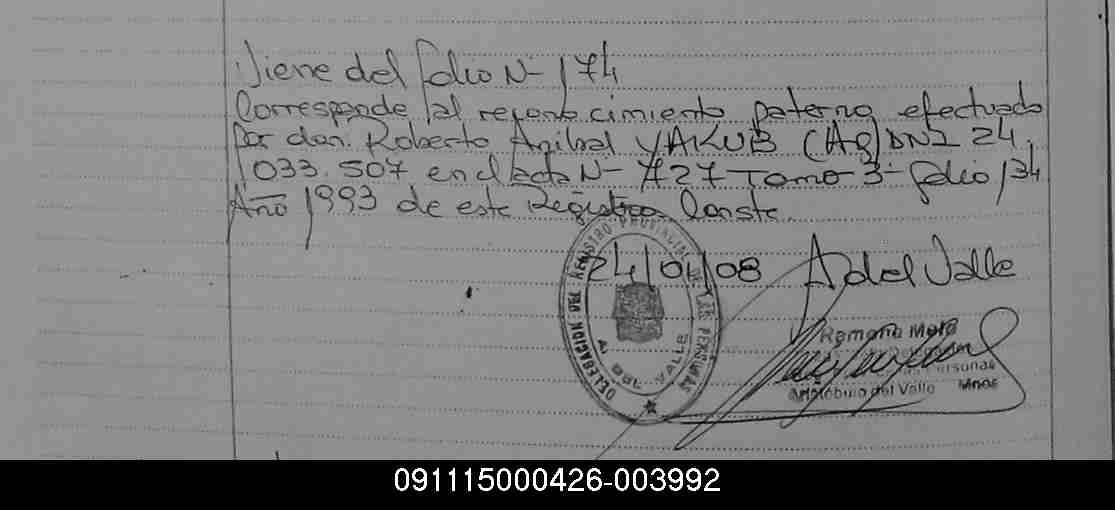 Viene del folio N- 174
Corresponde al reconocimiento paterno efectuado
Por don. Roberto Anibal YAKUB (AR) DNI 24.
033.507 en el acta N- 727 Tomo 3- folio 134
Año 1993 de este Registro Conste.
24/01/08 A del Valle
DELEGACION DEL REGISTRO PROVINCIAL DE LAS PERSONAS
A. DEL VALLE
Ramona
Personas
Aristóbulo del Valle Mnes
091115000426-003992